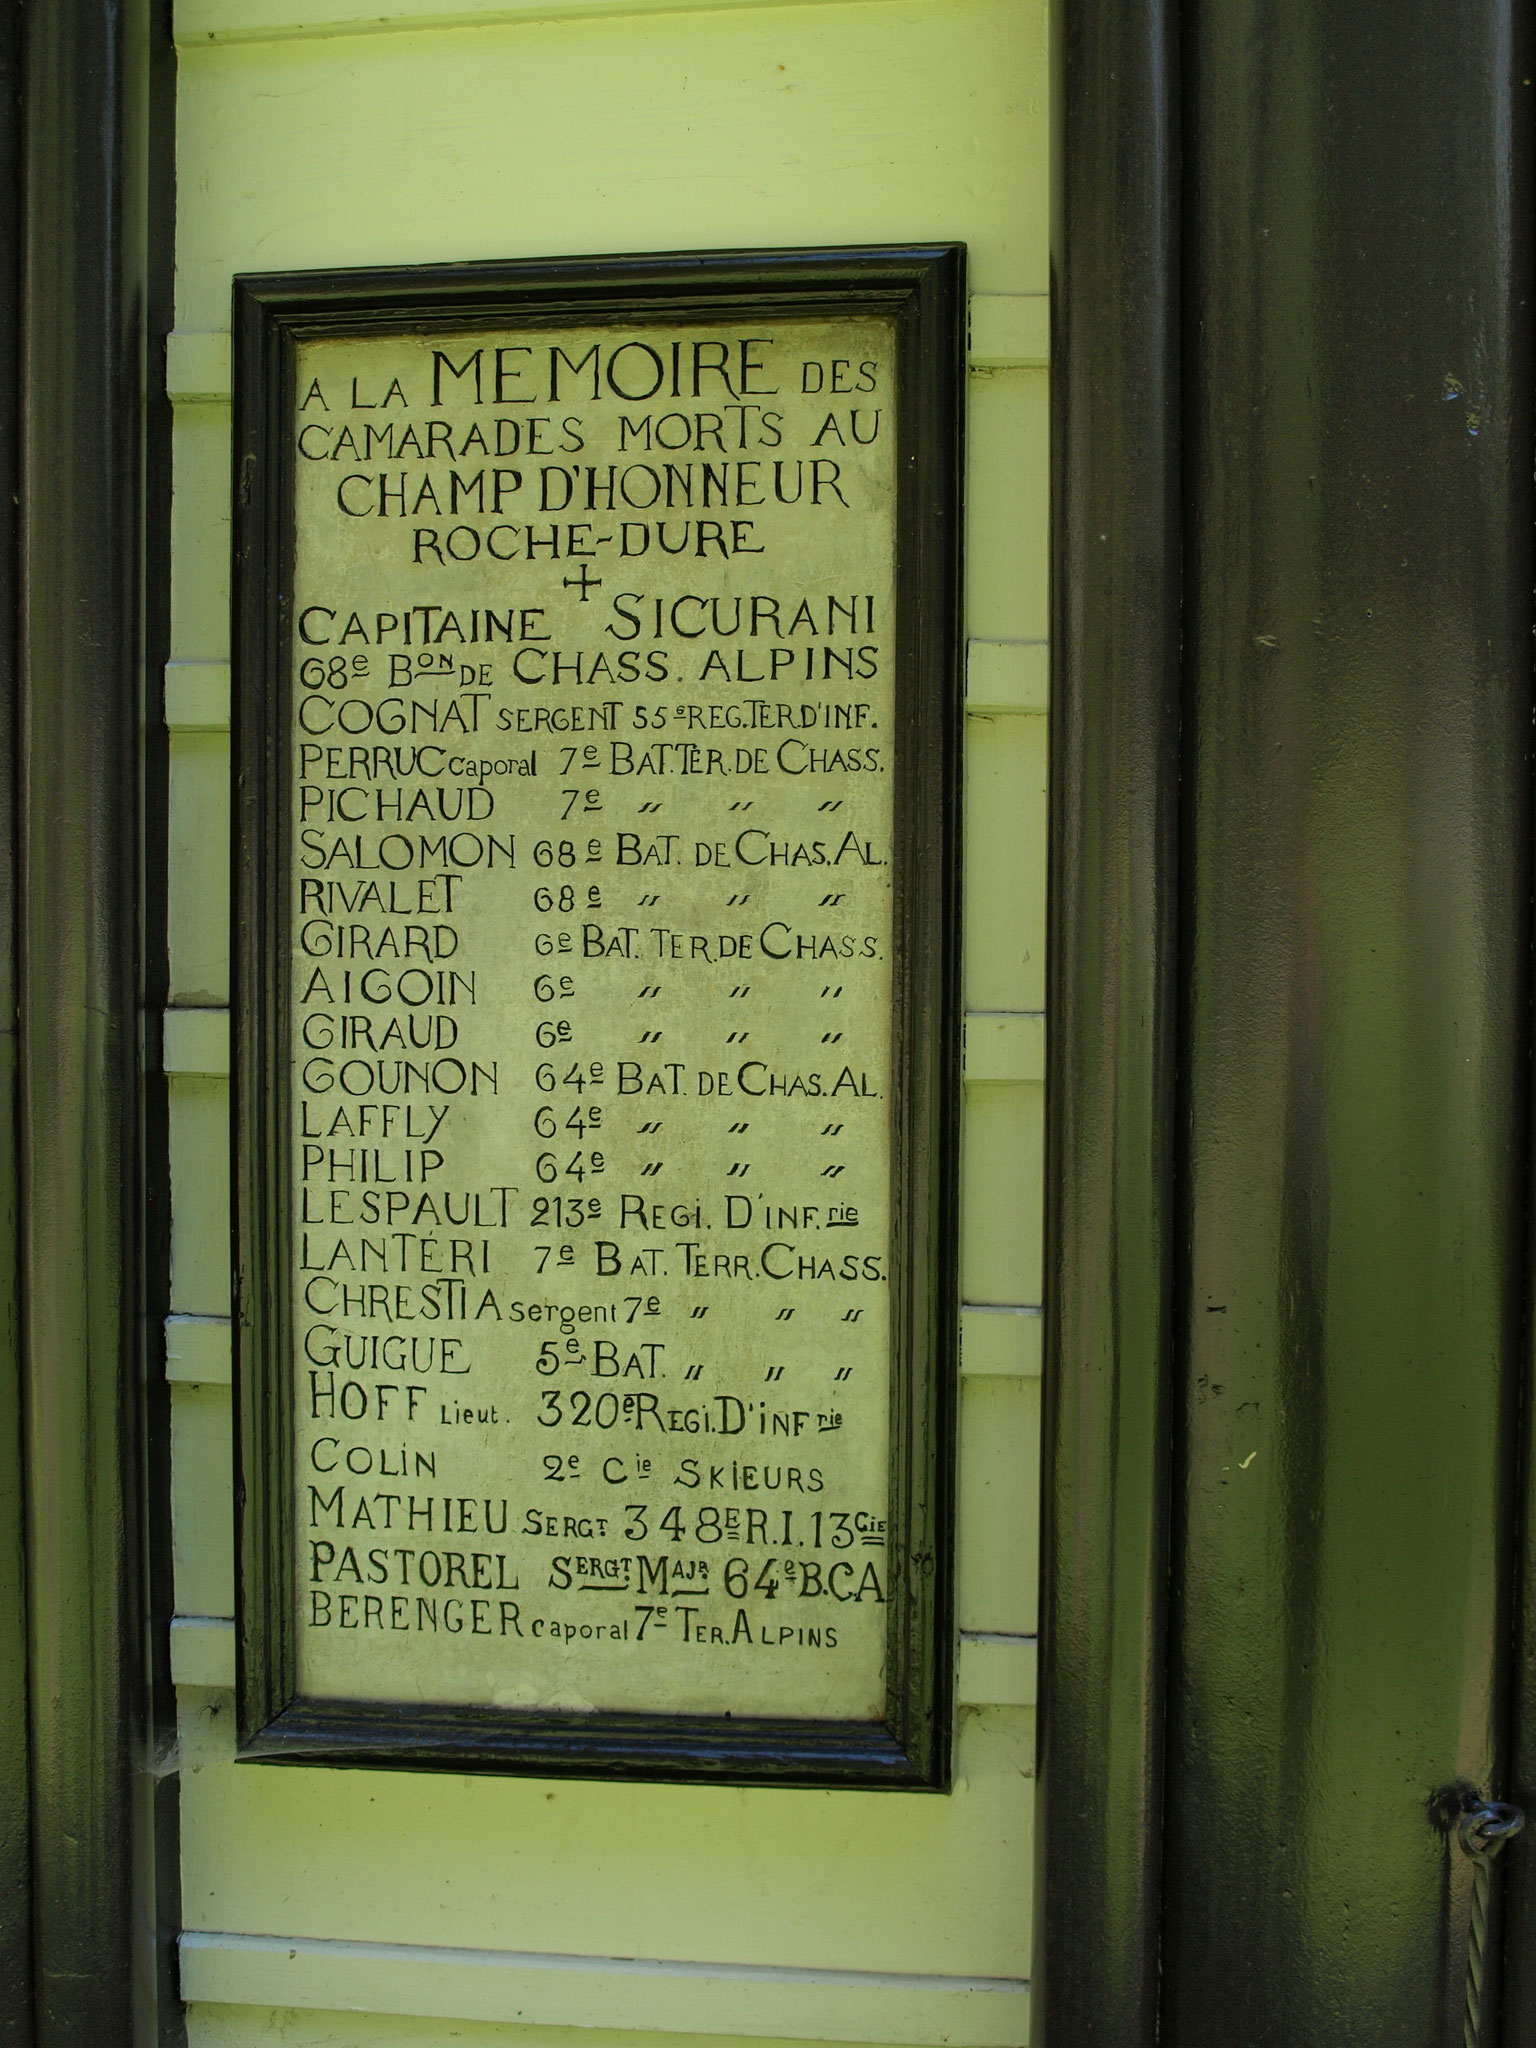 A LA MEMOIRE DES
CAMARADES MORTS AU
CHAMP D'HONNEUR
ROCHE-DURE
+
CAPITAINE SICURANI
68e Bon DE CHASS. ALPINS
COGNAT SERGENT 55e REG.TER.D'INF.
PERRUC caporal 7e BAT.TER.DE CHASS.
PICHAUD 7e " " "
SALOMON 68e BAT. DE CHAS.AL.
RIVALET 68e " " "
GIRARD 6e BAT. TER.DE CHASS.
AIGOIN 6e " " "
GIRAUD 6e " " "
GOUNON 64e BAT. DE CHAS.AL.
LAFFLY 64e " " "
PHILIP 64e " " "
LESPAULT 213e REGI. D'INF.rie
LANTÉRI 7e BAT. TERR.CHASS.
CHRESTIA sergent 7e " " "
GUIGUE 5e BAT. " " "
HOFF Lieut. 320e REGi.D'iNFrie
COLiN 2e Cie SKiEURS
MATHIEU SERGT 348E R.I.13CiE
PASTOREL SERGT. MAJR. 64e B.C.A
BERENGER caporal 7e TER.ALPINS